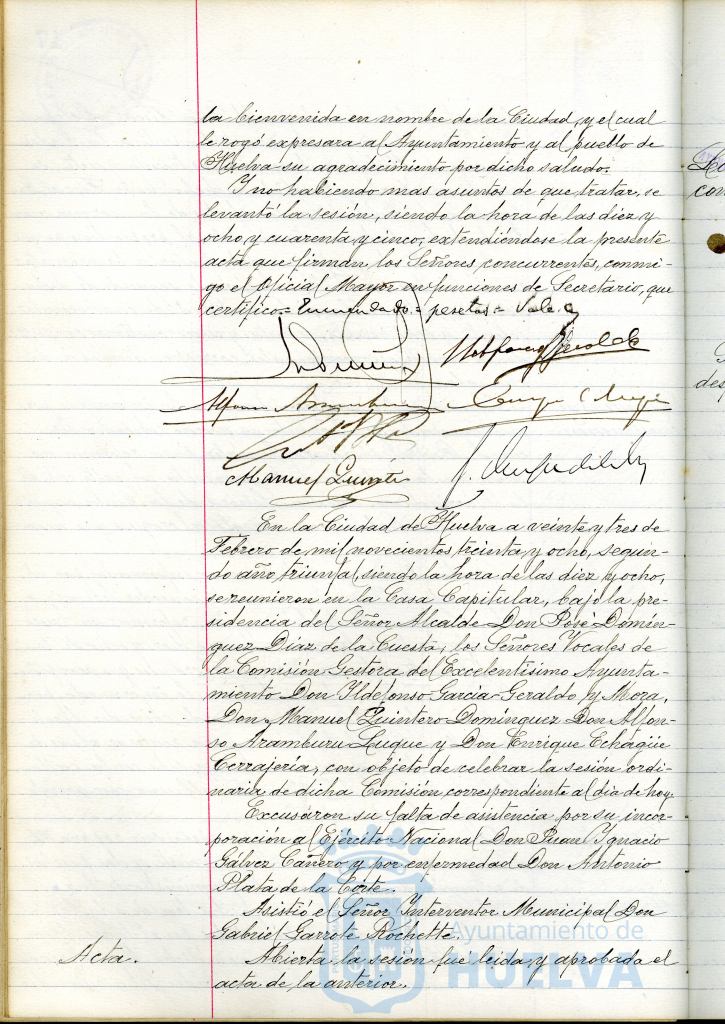 la bienvenida en nombre de la Ciudad, y el cual
le rogó expresara al Ayuntamiento y al pueblo de
Huelva su agradecimiento por dicho saludo.
Y no habiendo mas asuntos de que tratar, se
levantó la sesión, siendo la hora de las diez y
ocho y cuarenta y cinco, extendiéndose la presente
acta que firman los Señores concurrentes, conmi-
go el Oficial Mayor en funciones de Secretario, que
certifico.= Enmendado.= pesetas.= Vale.
Manuel Quintero
En la Ciudad de Huelva a veinte y tres de
Febrero de mil novecientos treinta y ocho, segun-
do año triunfal, siendo la hora de las diez y ocho,
se reunieron en la Casa Capitular, bajo la pre-
sidencia del Señor Alcalde Don José Domín-
guez Díaz de la Cuesta, los Señores Vocales de
la Comisión Gestora del Excelentísimo Ayunta-
miento Don Ildefonso García-Geraldo y Mora,
Don Manuel Quintero Domínguez Don Alfon-
so Aramburu Luque y Don Enrique Echagüe
Cerrajería, con objeto de celebrar la sesión ordi-
naria de dicha Comisión correspondiente al día de hoy.
Excusaron su falta de asistencia por su incor-
poración al Ejército Nacional Don Juan Ygnacio
Gálvez Cañero y por enfermedad Don Antonio
Plata de la Corte.
Asistió el Señor Interventor Municipal Don
Gabriel Garrote Rochette.
Acta. Abierta la sesión fue leída y aprobada el
acta de la anterior.
Ayuntamiento de
HUELVA